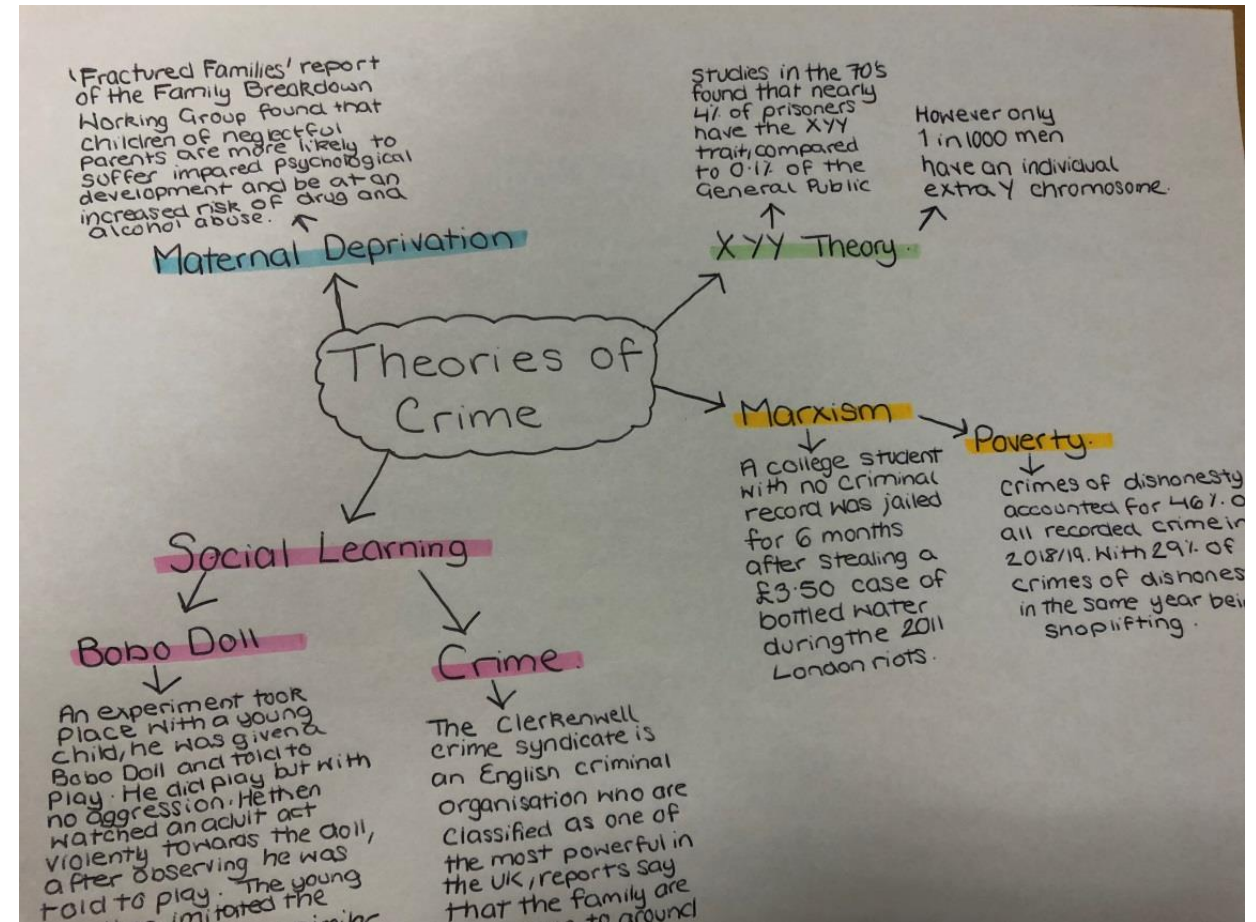 'Fractured Families' report
of the Family Breakdown
Working Group found that
children of neglectful
parents are more likely to
suffer impared psychological
development and be at an
increased risk of drug and
alcohol abuse.
Maternal Deprivation
studies in the 70's
found that nearly
4% of prisoners
have the XYY
trait, compared
to 0.1% of the
General Public
However only
1 in 1000 men
have an individual
extra Y chromosome.
XYY Theory.
Theories of
Crime
Marxism
A college student
with no criminal
record was jailed
for 6 months
after stealing a
£3.50 case of
bottled water
during the 2011
London riots.
Poverty.
crimes of dishonesty
accounted for 46% o
all recorded crime in
2018/19. With 29% of
crimes of dishones
in the same year bei
shoplifting.
Social Learning
Bobo Doll
An experiment took
place with a young
child, he was given a
Bobo Doll and told to
play. He did play but with
no aggression. He then
watched an adult act
violenty towards the doll,
after observing he was
told to play. The young
imitated the
similar
Crime.
The Clerkenwell
crime syndicate is
an English criminal
organisation who are
classified as one of
the most powerful in
the UK, reports say
that the family are
to around